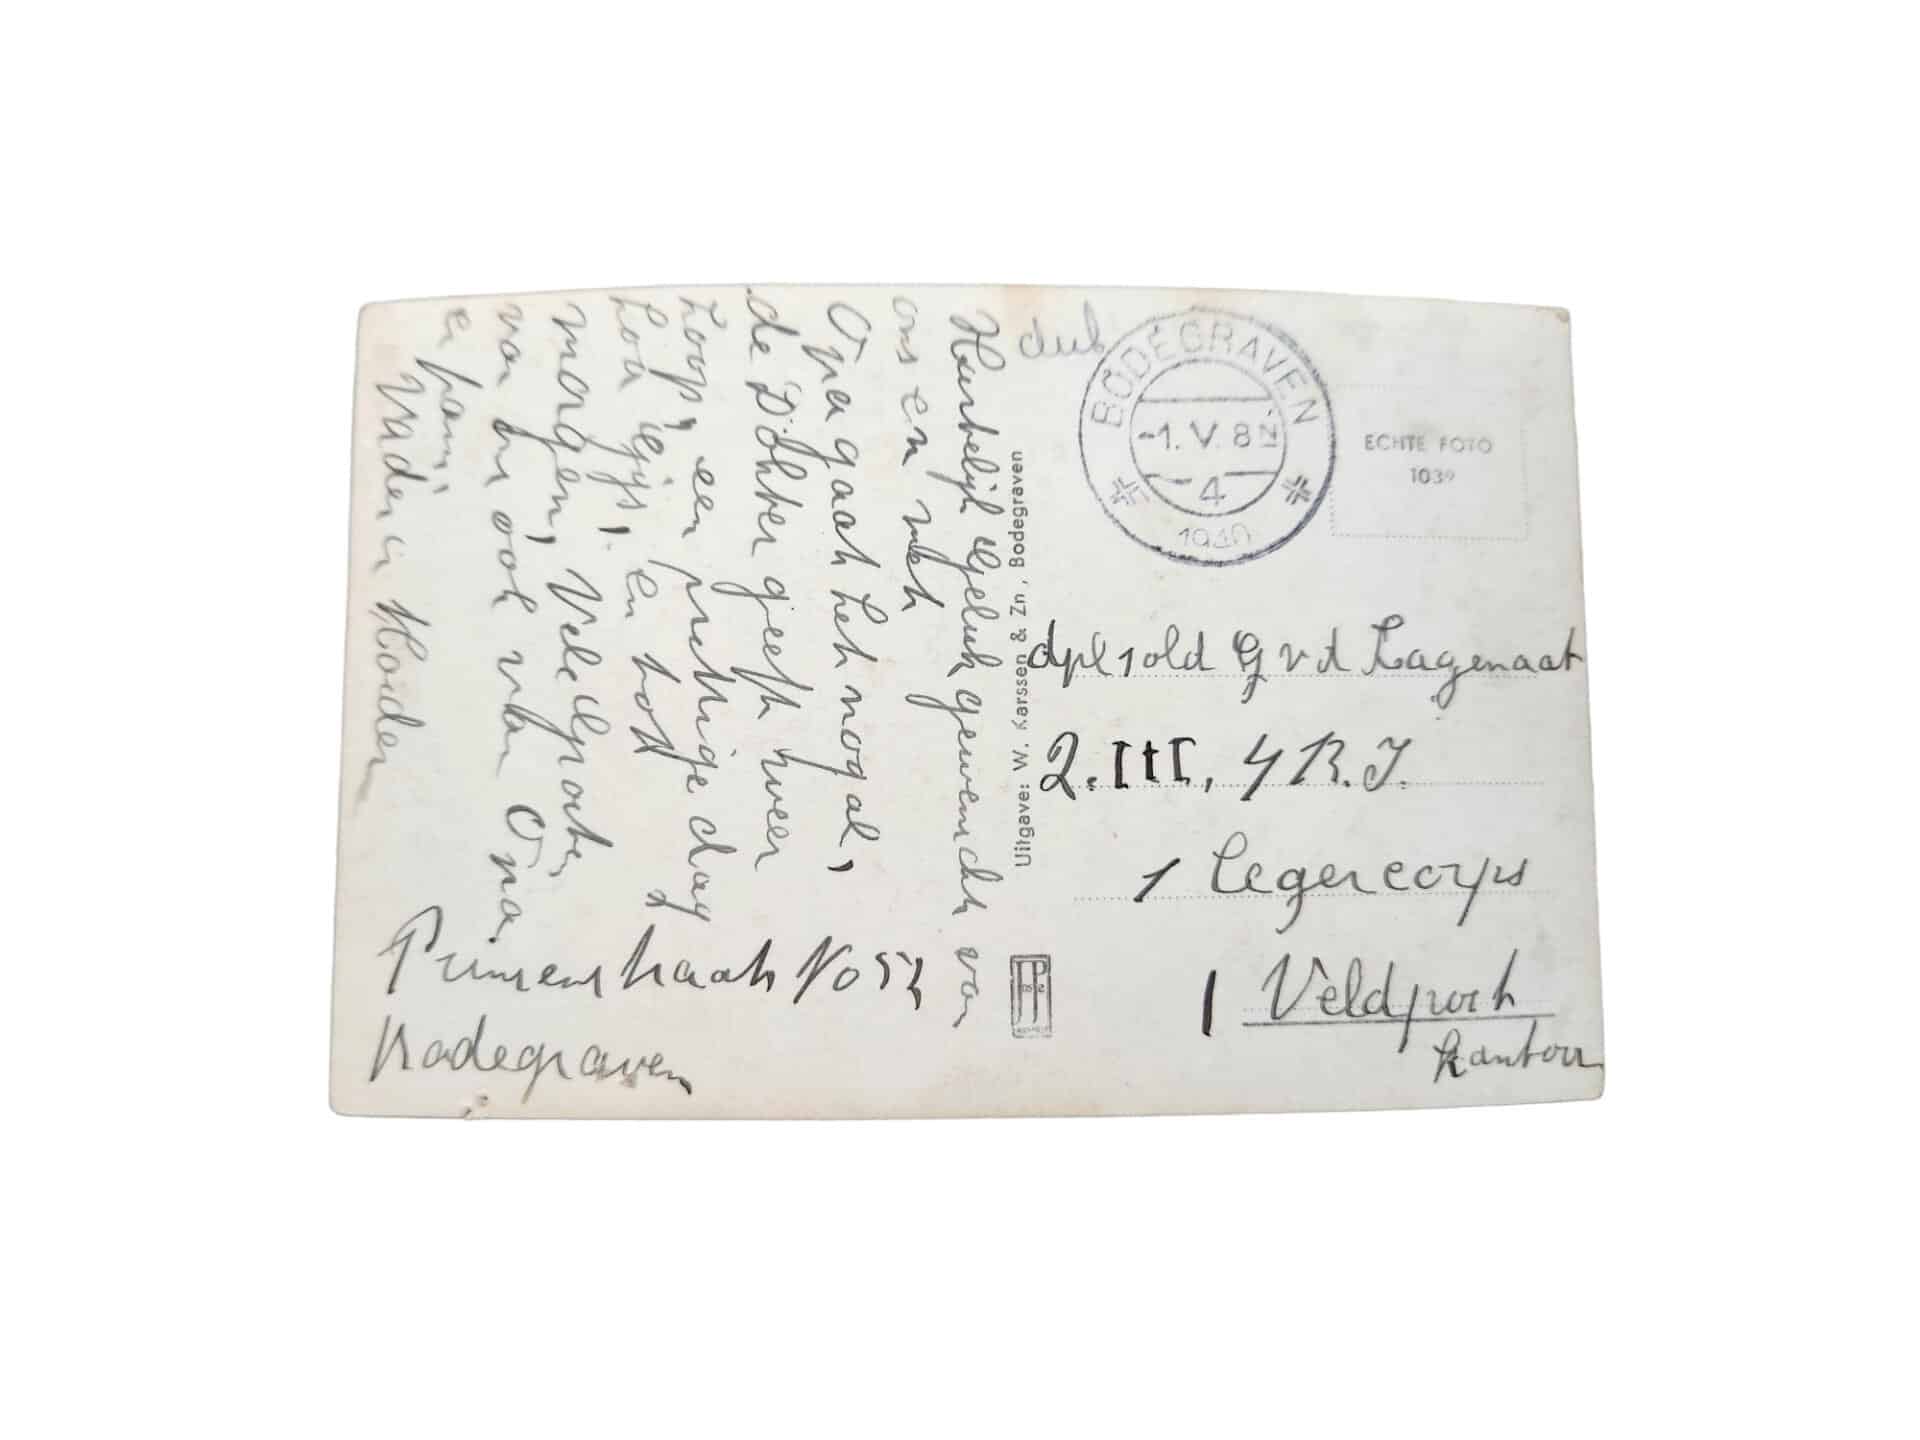 Hartelijk Gefeliciteerd gewenscht van
ons en met
Opa gaat het nogal,
de Dokter geeft weer
hoop, een prettige dag
hoor Gijs, en tot
morgen, Vele Groeten
van en ook van Opa
Vader en Moeder
Prinsenstraat No 52
Bodegraven
Uitgave: W. Karssen & Zn., Bodegraven
BODEGRAVEN
-1. V. 8
4
1940
ECHTE FOTO
1039
dpl sold G v d Lagemaat
2. III, 4 R. I.
1 Legercorps
1 Veldpost
kantoor